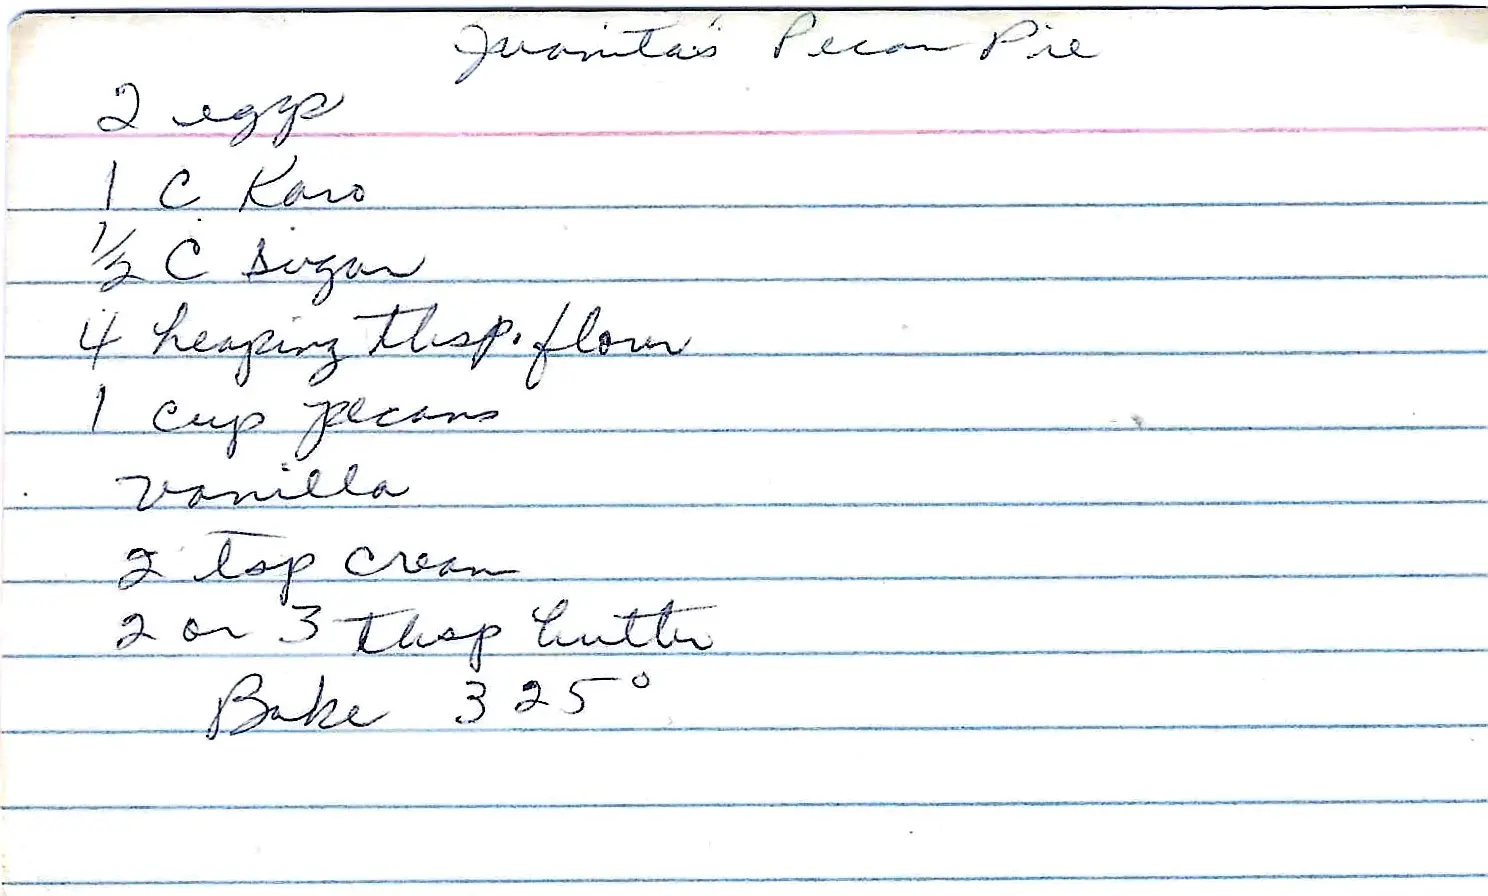 Juanita's Pecan Pie
2 eggs
1 C Karo
1/2 C sugar
4 heaping tbsp. flour
1 cup pecans
vanilla
2 tsp cream
2 or 3 tbsp butter
Bake 325°